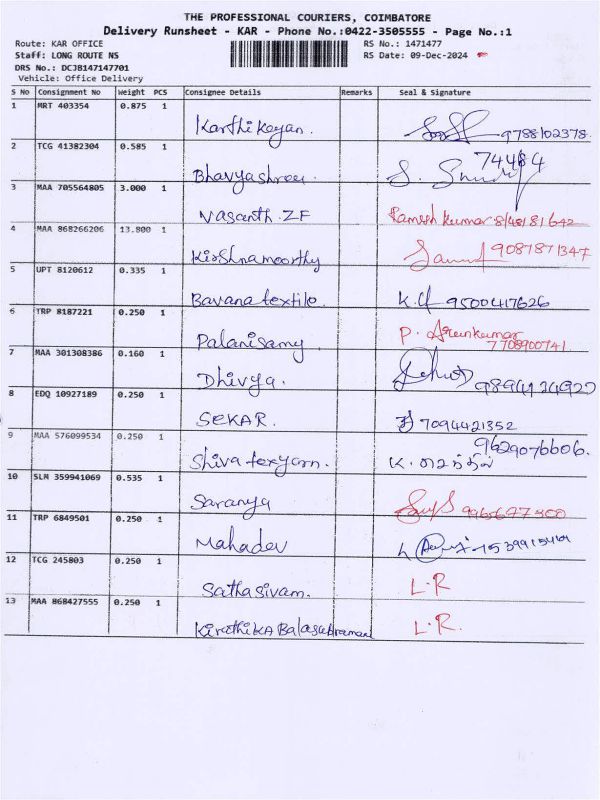 THE PROFESSIONAL COURIERS, COIMBATORE
Delivery Runsheet - KAR - Phone No.:0422-3505555 - Page No.:1
Route: KAR OFFICE RS No.: 1471477
Staff: LONG ROUTE NS RS Date: 09-Dec-2024
DRS No.: DCJB147147701
Vehicle: Office Delivery
S No Consignment No Weight PCS Consignee Details Remarks Seal & Signature
1 MRT 403354 0.875 1 Karthikeyan. 9788102378
2 TCG 41382304 0.585 1 Bhavyashree. 74484
3 MAA 705564805 3.000 1 Vasanth. ZF Ramesh kumar 8148181642
4 MAA 868266206 13.800 1 Kirshnamoorthy 9087871347
5 UPT 8120612 0.335 1 Bavana textile. 9500417626
6 TRP 8187221 0.250 1 Palanisamy P. Arunkumar
7708900741
7 MAA 301308386 0.160 1 Dhivya.
8 EDQ 10927189 0.250 1 SEKAR. 7094421352
9 MAA 576099534 0.250 1 Shiva texyarn. 9629076606.
10 SLM 359941069 0.535 1 Saranya
11 TRP 6849501 0.250 1 Mahadev
12 TCG 245803 0.250 1 Sathasivam. L.R
13 MAA 868427555 0.250 1 KirithiKA Balasubramani L.R.